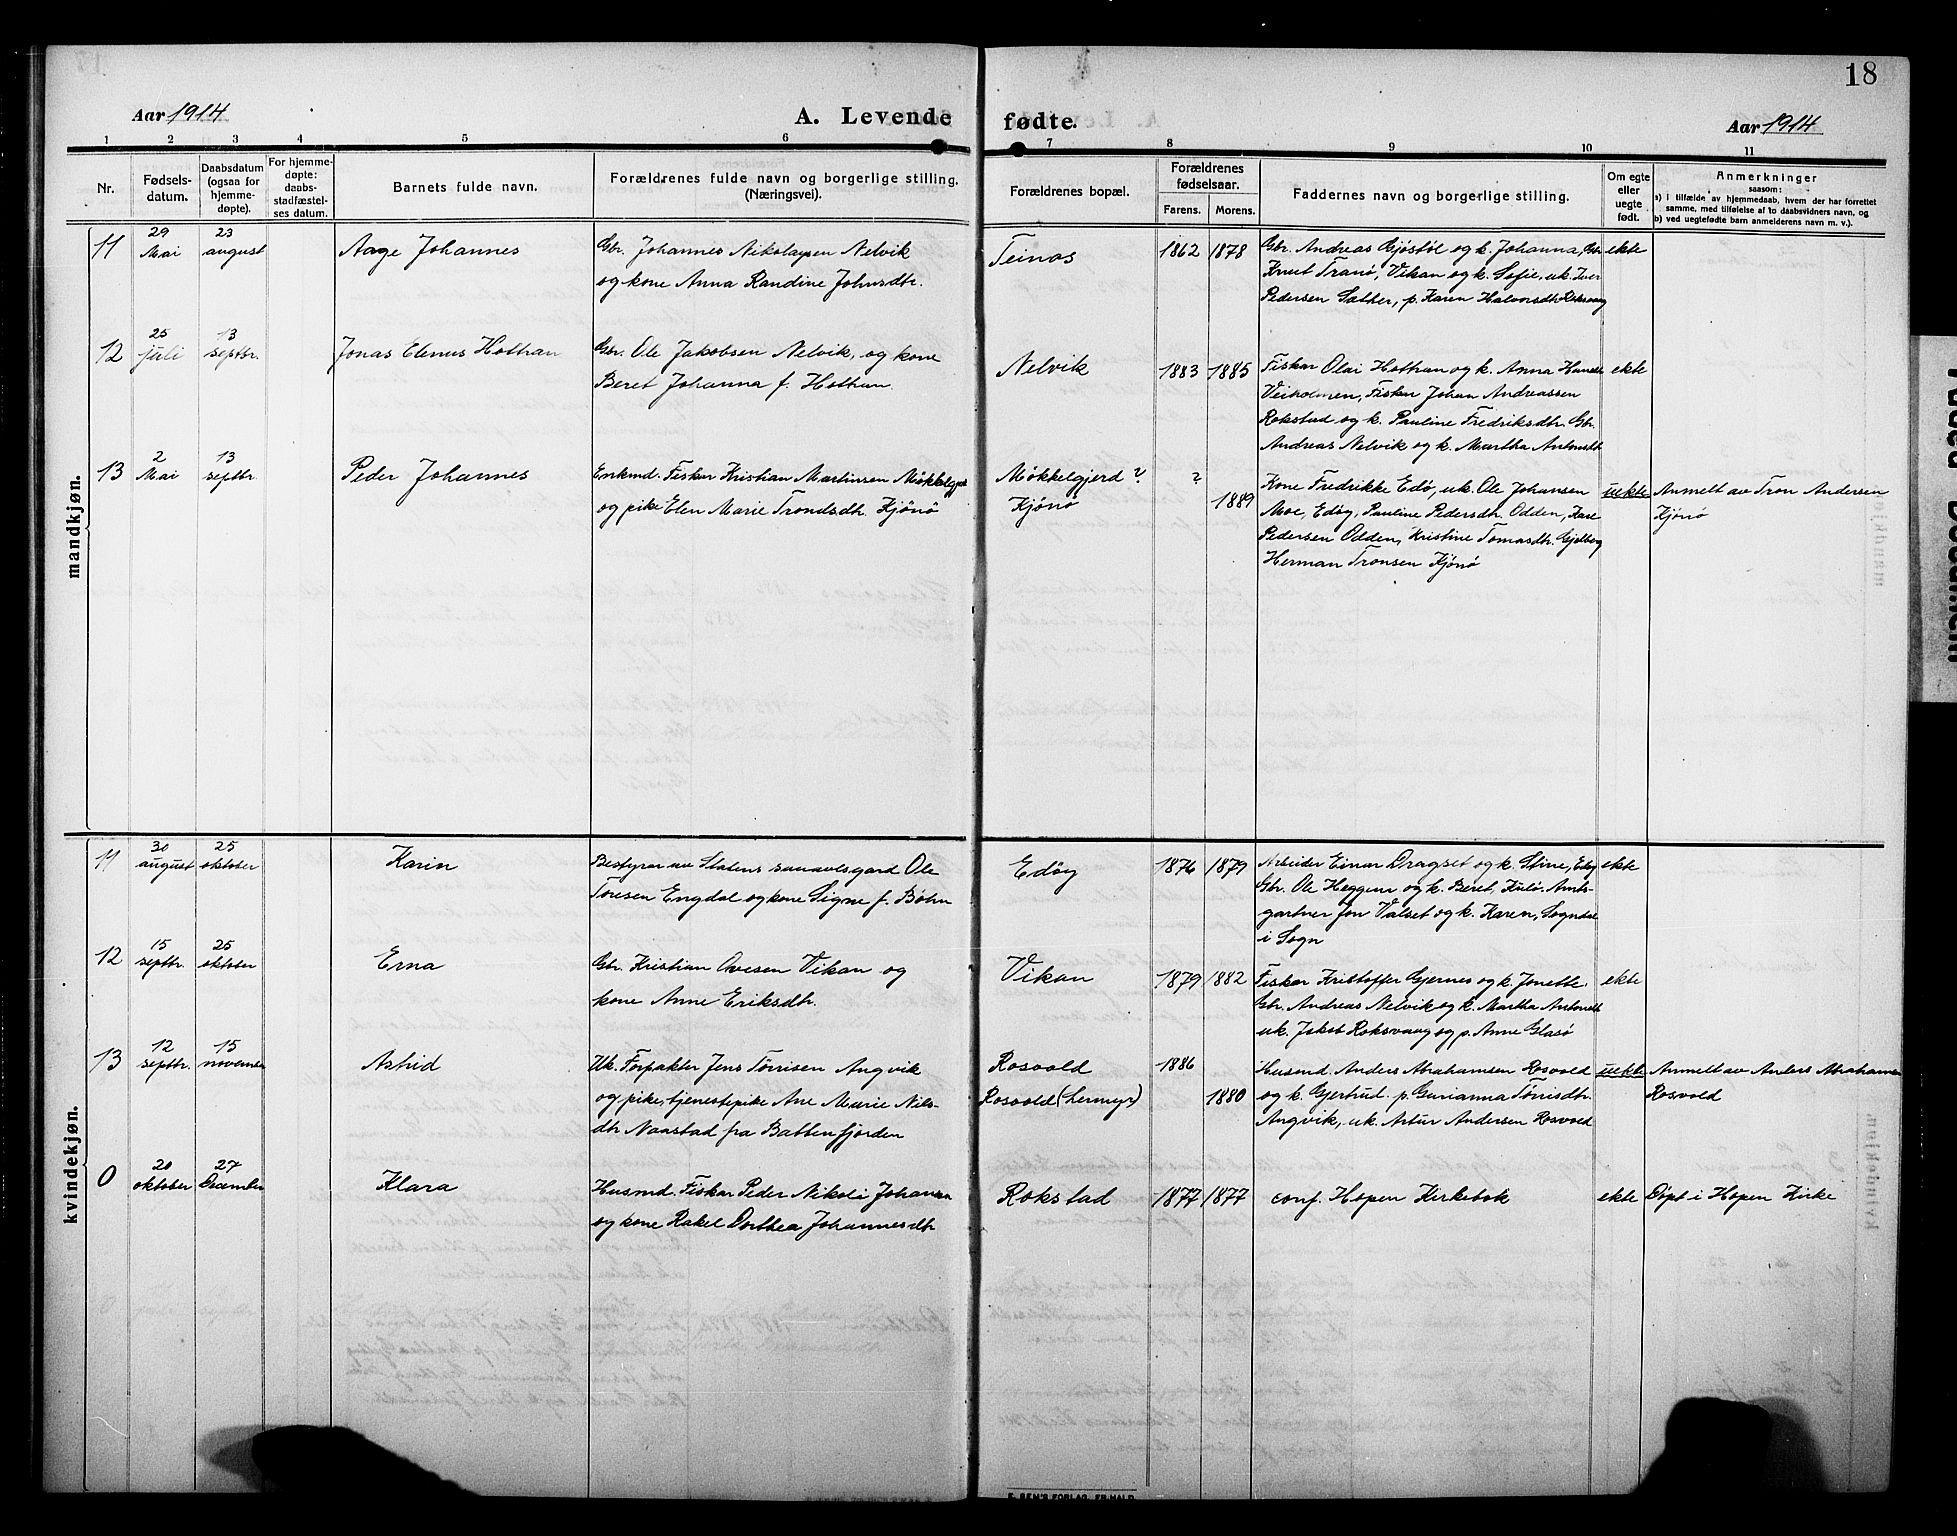 18
Aar 1914
A. Levende fødte.
Aar 1914
1 2 3 4 5 6 7 8 9 10 11
Nr.
Fødsels-
datum.
Daabsdatum
(ogsaa for
hjemme-
døpte).
For hjemme-
døpte:
daabs-
stadfæstel-
ses datum.
Barnets fulde navn.
Forældrenes fulde navn og borgerlige stilling.
(Næringsvei).
Forældrenes bopæl.
Forældrenes
fødselsaar.
Farens. Morens.
Faddernes navn og borgerlige stilling.
Om egte
eller
uegte
født.
Anmerkninger
saasom:
a) i tilfælde av hjemmedaab, hvem der har forrettet
samme, med tilføielse af to daabsvidners navn, og
b) ved uegtefødte barn anmelderens navn m. v.).
mandkjøn.
11
29
Mai
23
august
Aage Johannes
Gbr. Johannes Nikolaysen Nelvik
og kone Anna Randine Johnsdtr.
Teinos
1862 1878
Gbr. Andreas Gjøstøl og k. Johanna, Gbr
Knut Tranø, Vikan og k. Sofie, uk. Iver
Pedersen Sæther, p. Karen Halvorsdtr Roksvaag
ekte
12
25
juli
13
septbr.
Jonas Elenus Hothan
Gbr. Ole Jakobsen Nelvik, og kone
Beret Johanna f. Hothan.
Nelvik
1883 1885
Fisker Olai Hothan og k. Anna
Veiholmen, Fisker Johan Andreassen
Rokstad og k. Pauline Fredriksdtr. Gbr.
Andreas Nelvik og k. Martha Antonsdtr
ekte
13
2
Mai
13
septbr.
Peder Johannes
Enkmd. Fisker Kristian Martinsen Mökkelgjerd
og pike Elen Marie Trondsdtr. Kjönö
Mökkelgjerd ?
Kjönö
?
1889
Kone Fredrikke Edö, uk. Ole Johansen
Moe, Edöy, Pauline Pedersdtr. Odden, Kare
Pedersen Odden, Kristine Tomasdtr. Gjelberg
Herman Tronsen Kjönö
uekte
Anmelt av Tron Andersen
Kjönö
kvindekjøn.
11
30
august
25
oktober
Karin
Bestyrer av Statens sauavlsgard Ole
Toresen Engdal og kone Signe f. Böhn
Edöy
1876 1879
Arbeider Einar Dragset og k. Stine, Edöy
Gbr. Ole Heggem og k. Beret, Kulö. Amts-
gartner Jon Valset og k. Karen, Sogndal
i Sogn
ekte
12
15
septbr.
25
oktober
Erna
Gbr. Kristian Ovesen Vikan og
kone Anne Eriksdtr.
Vikan
1879 1882
Fisker Kristoffer Gjernes og k. Jonette.
Gbr. Andreas Nelvik og k. Martha Antonsdtr
uk. Jakob Roksvaag og p. Anne Glasö
ekte
13
12
septbr.
15
november
Astrid
Uk. Forpakter Jens Tørrisen Angvik
og pike, tjenestepike Ane Marie Nils-
dtr Naastad fra Battenfjorden
Rosvold
Rosvold (Lermyr)
1886
1880
Husmd. Anders Abrahamsen Rosvold
og k. Gjertrud. p. Gurianna Tørrisdtr.
Angvik, uk. Artur Andersen Rosvold
uekte
Anmelt av Anders Abrahamsen
Rosvold
0
20
oktober
27
Desember
Klara
Husmd. Fisker Peder Nikolai Johansen
og kone Rakel Dorthea Johannesdtr
Rokstad
1877 1877
conf. Hopen Kirkebok
ekte
Döpt i Hopen Kirke